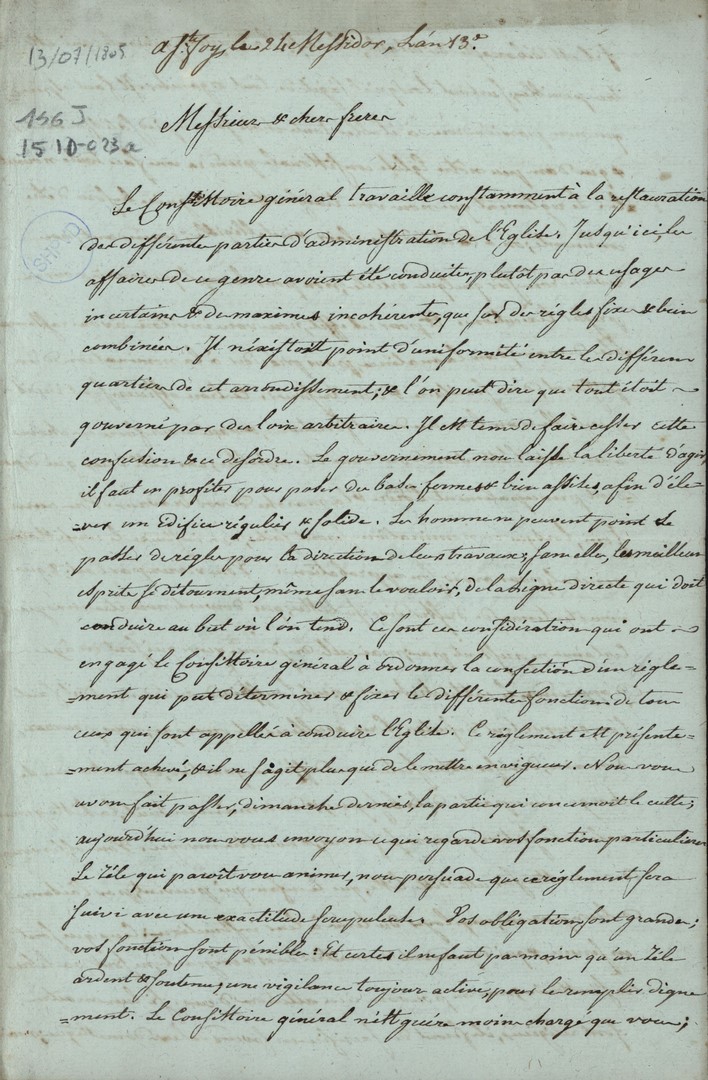 13/07/1805
a Ste. Foy, le 24 Messidor, L'an 13e.
156 J
15 10-023a
Messieurs & chers freres
Le Consistoire général travaille constamment à la restauration
des différentes parties d'administration de l'Eglise. Jusqu'ici, les
affaires de ce genre avoient été conduites, plutot par des usages
incertains & des maximes incohérentes, que sur des régles fixes & bien
combinées. Il n'éxistoit point d'uniformité entre les différens
quartiers de cet arrondissement; & l'on peut dire que tout étoit
gouverné par des loix arbitraires. Il est tems de faire cesser cette
confusion & ce desordre. Le gouvernement nous laisse la liberté d'agir,
il faut en profiter pour poser des bases fermes & bien assises, afin d'éle-
=ver un Edifice régulier & solide. Les hommes ne peuvent point se
passer de régles pour la direction de leurs travaux; sans elles, les meilleurs
esprits se détournent, même sans le vouloir, de la ligne directe qui doit
conduire au but où l'on tend. Ce sont ces considérations qui ont
engagé le Consistoire général à ordonner la confection d'un régle-
=ment qui put déterminer & fixer les différentes fonctions de tous
ceux qui sont appellés à conduire l'Eglise. Ce réglement est présente-
=ment achevé, & il ne s'agit plus que de le mettre en vigueur. Nous vous
avons fait passer, dimanche dernier, la partie qui concernoit le culte;
aujourd'hui nous vous envoyons ce qui regarde vos fonctions particulieres
Le zéle qui paroit vous animer, nous persuade que ce réglement sera
suivi avec une exactitude scrupuleuse. Vos obligations sont grandes;
vos fonctions sont pénibles: Et certes il ne faut pas moins qu'un zéle
ardent & soutenu, une vigilance toujours active, pour les remplir digne
=ment. Le Consistoire général n'est guére moins chargé que vous;